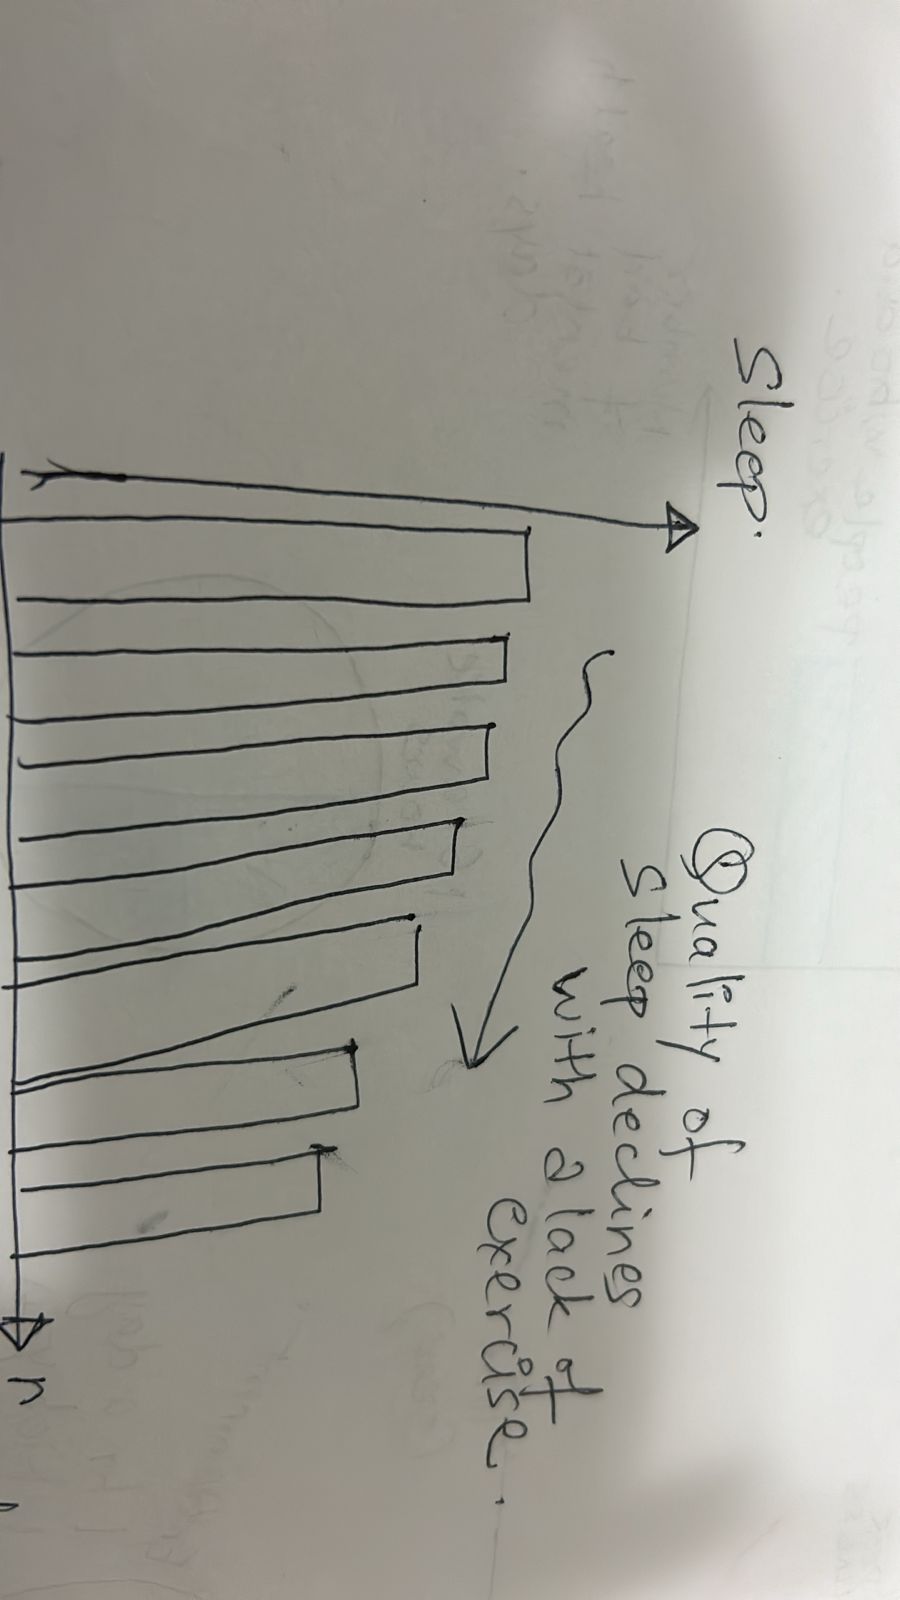 Sleep.
Quality of
sleep declines
with a lack of
exercise.
n